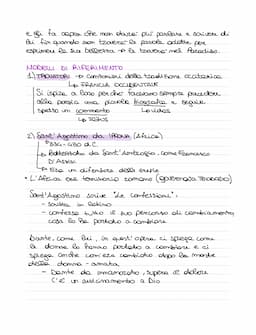 e gli fa capire che non deve più parlare e scrivere di
lei fin quando non troverà le parole adatte per
esprimere la sua bellezza → la troverà nel Paradiso.
MODELLI DI RIFERIMENTO
1) TROVATORI → Canzonieri della tradizione occitanica
↳ FRANCIA OCCIDENTALE
Si ispira a loro perché facevano sempre precedere
alla poesia una piccola biografia e seguire
spesso un commento ↳ vidas
↳ razos
2) Sant'Agostino da IPPONA (Africa)
354-430 d.C.
↳ Battezzato da Sant'Ambrogio, come Francesco
D'Assisi
↳ Era in difensore della
• L'Africa era territorio romano (
Sant'Agostino scrive "le confessioni":
- scritta in latino
- confessa tutto il suo percorso di cambiamento,
cosa lo ha portato a cambiare
Dante, come lui, in quest'opera ci spiega come
la donna lo hanno portato a cambiare e ci
spiega anche com'era cambiato dopo la morte
della donna-amata
- Dante da innamorato, supera il dolore
C'è un avvicinamento a Dio